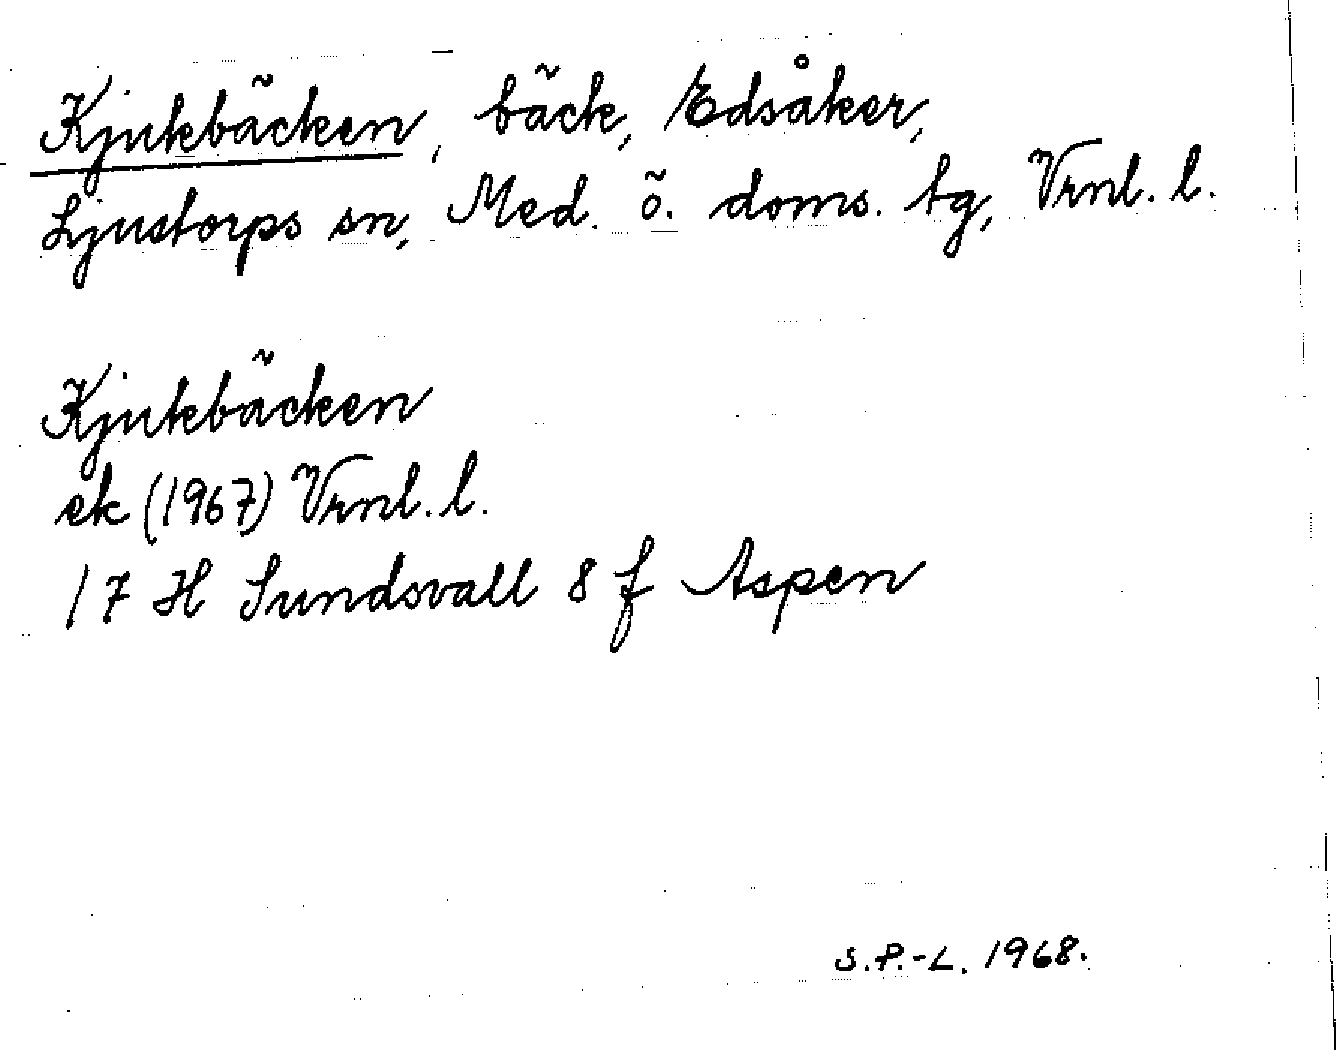 Kjukebäcken, bäck, Edsåker,
Ljustorps sn, Med. ö. doms. tg, Vrnl. l.
Kjukebäcken
ek (1967) Vrnl. l.
17 H Sundsvall 8 f Aspen
S.P.-L. 1968.